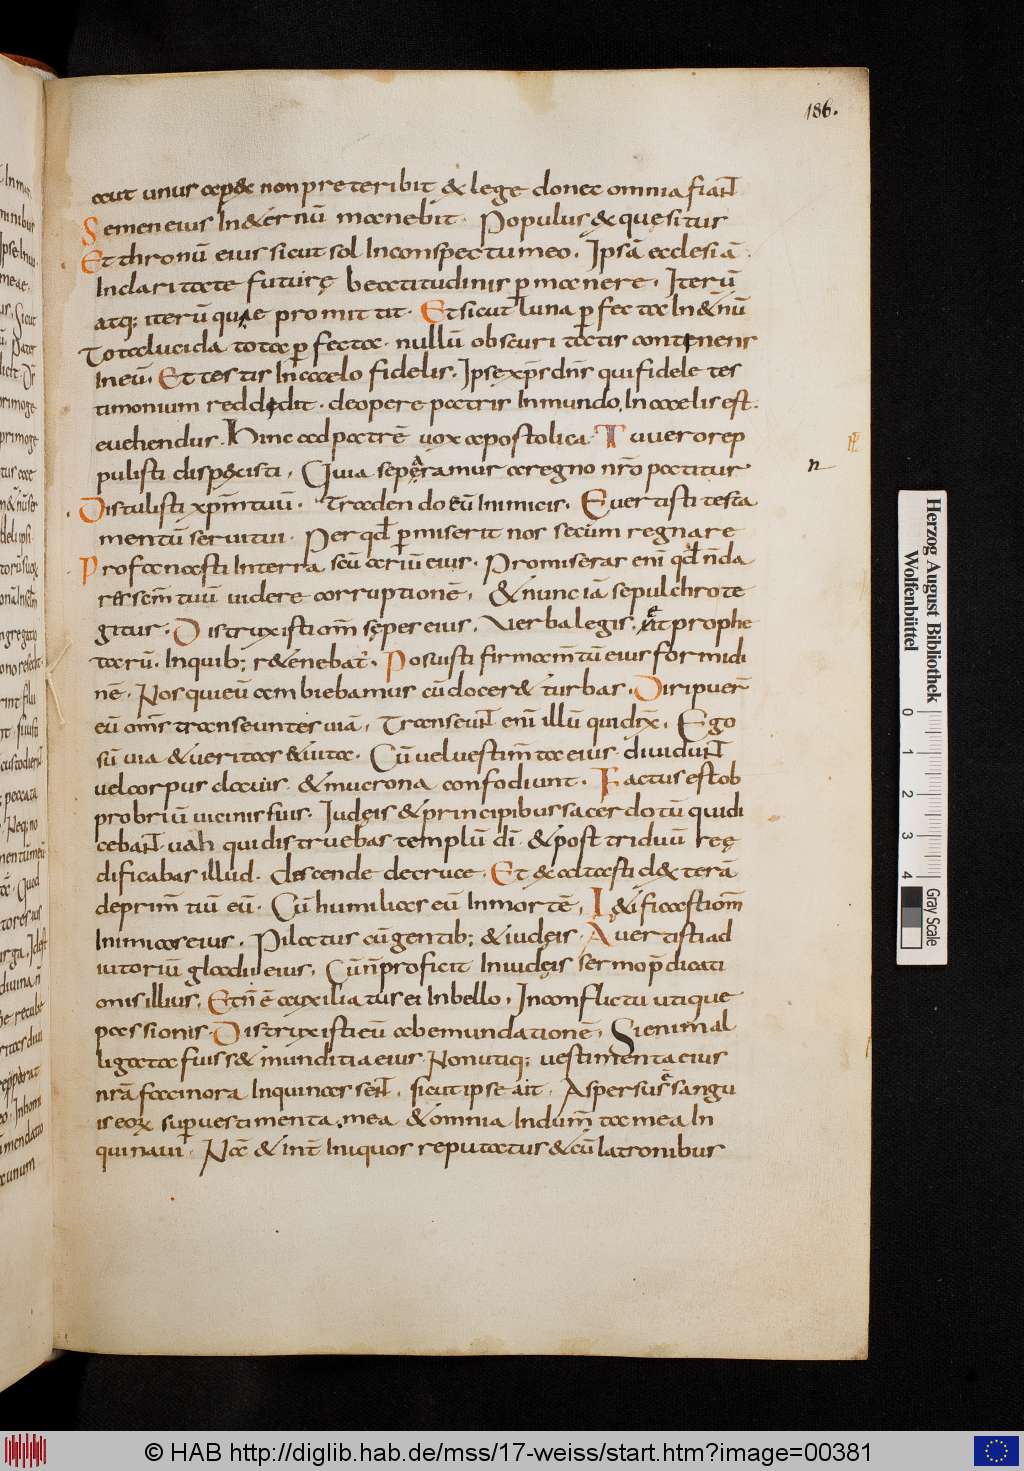 186.
aut unus apex non preteribit & lege donec omnia fiant
Semen eius In&ernū manebit. Populus & quęsitus
Et thronū eius sicut sol Inconspectu meo. Ipsā ecclesiā.
Inclaritate futurę beatitudinis p̄manere. Iterū
atq; iterū quae promittit. Et sicut luna p̄fecta In&nū
Tota lucida tota p̄fecta. nullū obscuritatis contenens
In eū. Et testis In caelo fidelis. Ipse xp̄s dn̄s qui fidele tes
timonium reddedit. de opere patris In mundo, In caelis est.
euehendus. Hinc ad patrē uox apostolica. Tu uero rep
pulisti dispexisti. Quia seperamur a regno nr̄o patitur
n
Distulisti xp̄m tuū. Tradendo eū Inimicis. Euertisti testa
mentū serui tui. Per qd̄ p̄miseris nos secum regnare
Profanasti In terra scū̄ariū eius. Promiseras enī qd̄ n̄ da
res sc̄m tuū uidere corruptionē, & nunc iā sepulchro te
gitur. Distruxisti om̄s sępes eius. Verba legis, prophe
tarū. In quib; r&enebat̄. Posuisti firmam̄tū eius formidi
nē. Nos qui eū ambiebamus cū docer& turbas. Diripuer̄
eū om̄s transeuntes uiā. Transeunt enī illū qui dix̄. Ego
sū uia & ueritas & uita. Cū uel uestim̄ta eius diuidunt
uel corpus clauis & mucrona confodiunt. Factus est ob
probriū uicinis suis. Iudęis & principibus sacerdotū qui di
cebant. uah qui distruebas templū dī & post triduū reę
dificabas illud. descende de cruce. Et exaltasti dexterā
deprim̄tiū eū. Cū humilias eū In mortē. L&ificasti om̄s
Inimicos eius. Pilatus cū gentib; & iudęis. Auertisti ad
iutoriū gladii eius. Cū n̄ proficit In iudęis sermo p̄dicati
onis illius. Et n̄ ē auxiliatus ei In bello. In conflictu utique
passionis. Distruxisti eū ab emundationē. Si enim al
ligata fuiss& munditia eius. Non utiq; uestimenta eius
nrā facinora Inquinassent. sicut ipse ait. Aspersus sangu
is eorū sup̄ uestimenta mea & omnia Indum̄ta mea In
quinaui. Nā & int̄ Iniquos reputatus & cū latronibus
Herzog August Bibliothek
Wolfenbüttel
0 1 2 3 4
Gray Scale
© HAB http://diglib.hab.de/mss/17-weiss/start.htm?image=00381